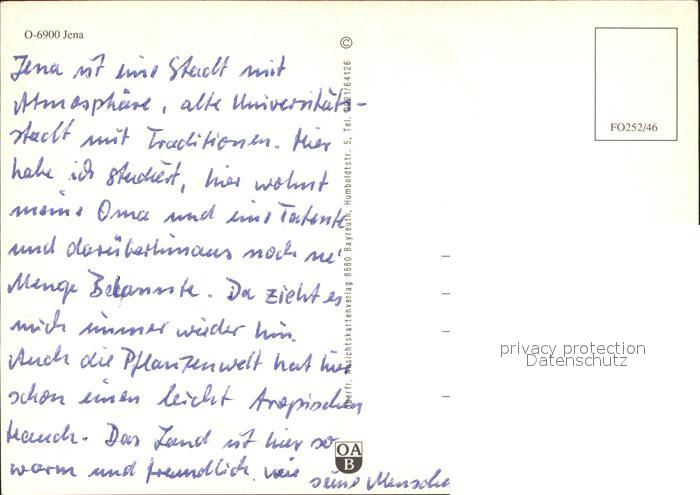 O-6900 Jena
Jena ist eine Stadt mit
Atmosphäre, alte Universitäts-
stadt mit Traditionen. Hier
habe ich studiert, hier wohnt
meine Oma und eine Tatente
und darüberhinaus noch ne'
Menge Bekannte. Da zieht es
mich immer wieder hin.
Auch die Pflanzenwelt hat hier
schon einen leicht tropischen
Hauch. Das Land ist hier so
warm und freundlich wie seine Mensche
©
Oberfr. Ansichtskartenverlag 8580 Bayreuth, Humboldtstr. 5, Tel. 0921/64126
OA
B
FO252/46
privacy protection
Datenschutz